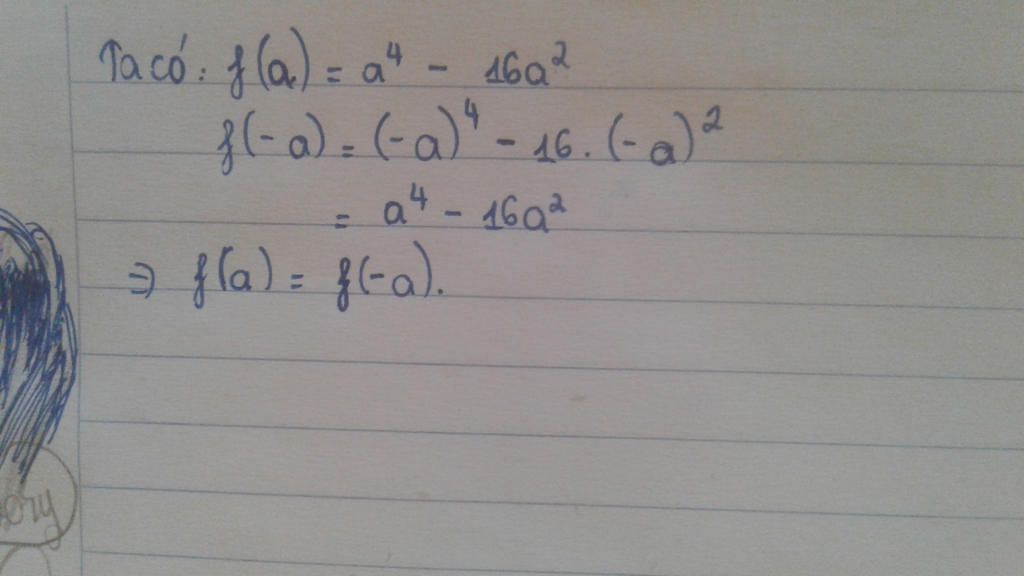 Ta có: f(a) = a⁴ - 16a²
f(-a) = (-a)⁴ - 16.(-a)²
= a⁴ - 16a²
⇒ f(a) = f(-a).